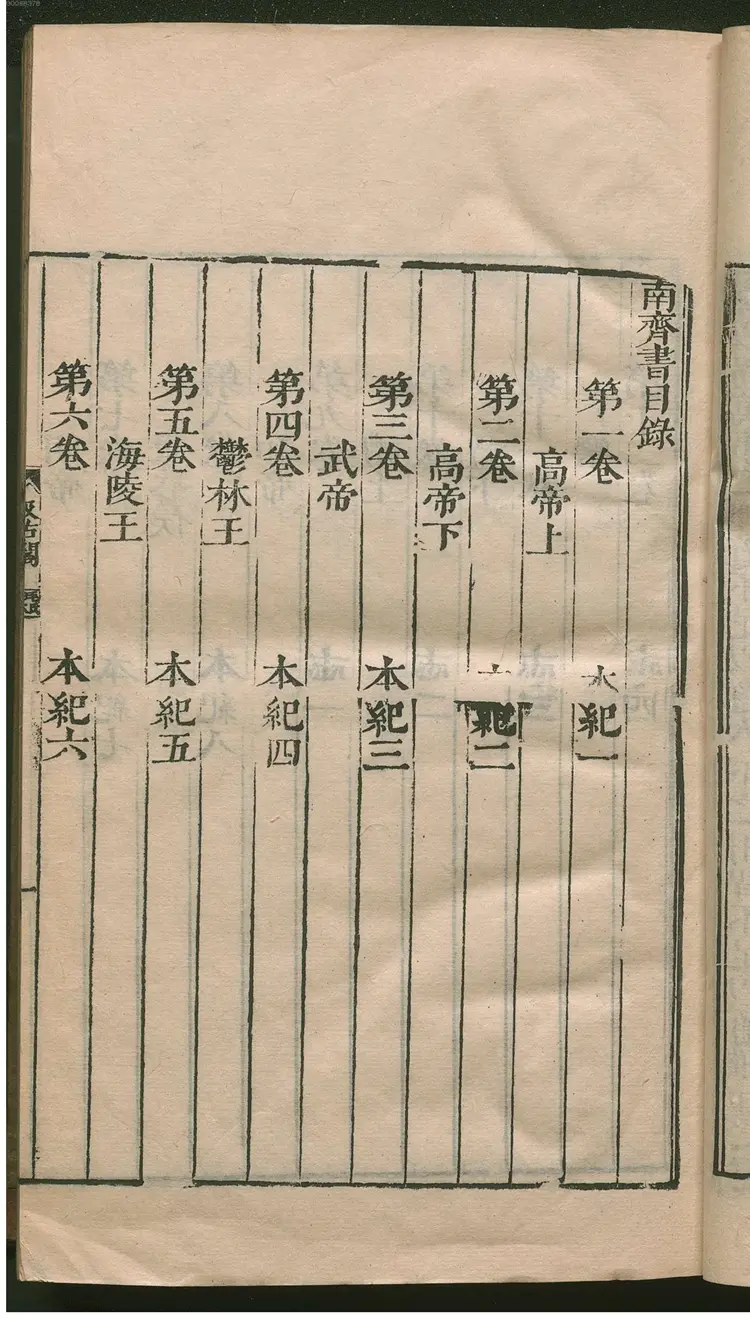 南齊書目錄
第一卷 本紀一
高帝上
第二卷 紀二
高帝下
第三卷 本紀三
武帝
第四卷 本紀四
鬱林王
第五卷 本紀五
海陵王
第六卷 本紀六
汲古閣